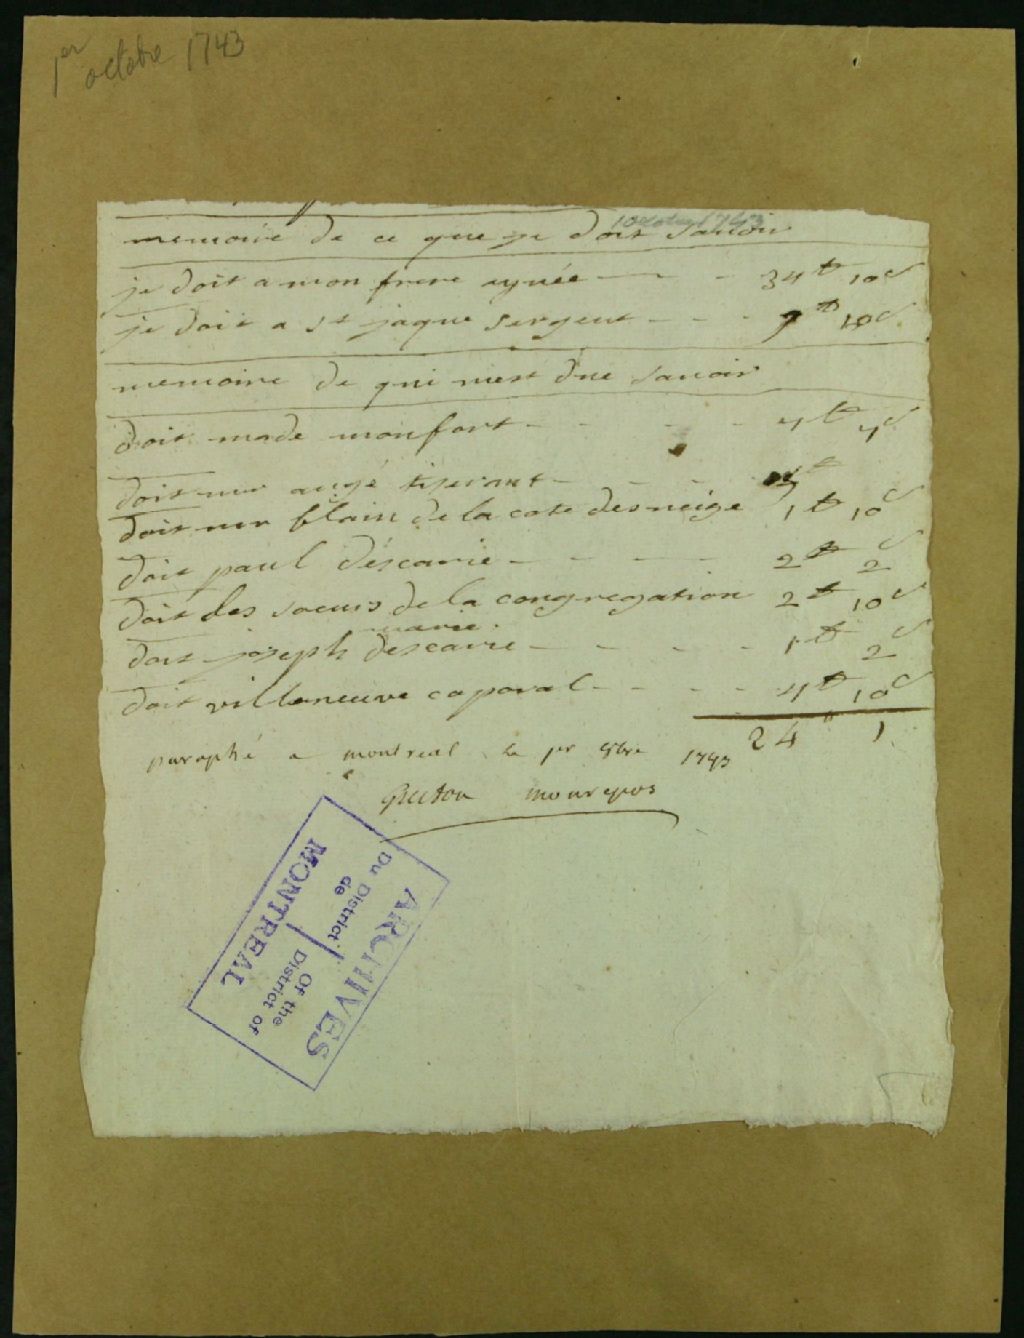 1er octobre 1743
1 octobre 1743
memoire de ce que je dois sauoir
je doit a mon frere aynée - - - 34 ₶ 10 s
je doit a st jaque sergent - - - 7 ₶ 10 s
memoire de qui mest due sauoir
doit made monfort - - - - 4 ₶ 4 s
doit mr augé tiserant - - - ₶
doit mr blain de la cote desneige 1 ₶ 10 s
doit paul déscarie - - - - 2 ₶ 2 s
doit les soeurs de la congregation 2 ₶ 10 s
marie
doit joseph descarie - - - - 1 ₶ 2 s
doit villeneuve caporal - - - - 4 ₶ 10 s
24 ₶ 1
paraphé a montreal le 1er 8bre 1743
Guiton monrepos
ARCHIVES
Du District de
Of the District of
MONTREAL